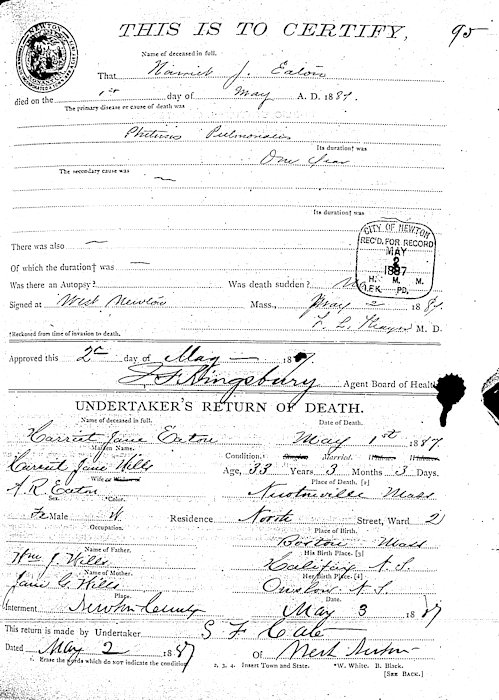 THIS IS TO CERTIFY, 95
Name of deceased in full.
That Harriet J. Eaton
died on the 1st day of May A. D. 1887.
The primary disease or cause of death was
Phthisis Pulmonalis
Its duration† was
One Year
The secondary cause was —
Its duration† was
CITY OF NEWTON
REC'D. FOR RECORD
MAY
2
1887
H. M. M.
PD.
There was also —
Of which the duration† was —
Was there an Autopsy? — Was death sudden? No
Signed at West Newton Mass., May 2 1887
F. L. Thayer M. D.
†Reckoned from time of invasion to death.
Approved this 2d day of May 1887.
J F Kingsbury Agent Board of Health
UNDERTAKER'S RETURN OF DEATH.
Name of deceased in full. Date of Death.
Harriet Jane Eaton May 1st 1887.
Maiden Name. Condition.¹ Single Married. Widower Widow
Harriet Jane Wills Age, 33 Years 3 Months 3 Days.
Wife or Widow of Place of Death. [2]
A. R. Eaton Newtonville Mass
Sex. *Color.
FeMale W Residence North Street, Ward 2
Occupation. Place of Birth.
Boston Mass
Name of Father. His Birth Place. [3]
Wm J. Wills Halifax N. S.
Name of Mother. Her Birth Place. [4]
Jane G. Wills Onslow N. S.
Place. Date.
Interment Newton Cemetery May 3 1887
This return is made by Undertaker S F Cate
Dated May 2 1887 Of West Newton
1. Erase the words which do not indicate the condition. 2, 3, 4. Insert Town and State. *W. White. B. Black.
[SEE BACK.]